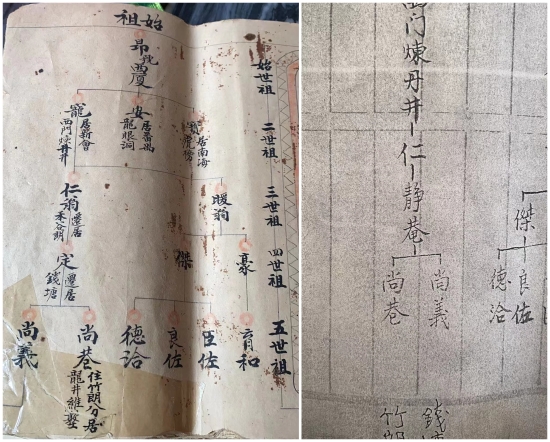 始祖
始世祖
昂號西廈
二世祖
寶居南海
安居番禺
龍眼洞
寵居新會
西門煉丹井
三世祖
暖翁
仁翁遷居
四世祖
豪
傑
定遷居
錢塘
五世祖
育和
臣佐
良佐
德洽
尚巷住竹朗分居
龍井維墪
尚義
西门煉丹井-仁-静菴
傑
良佐
德洽
尚義
尚巷